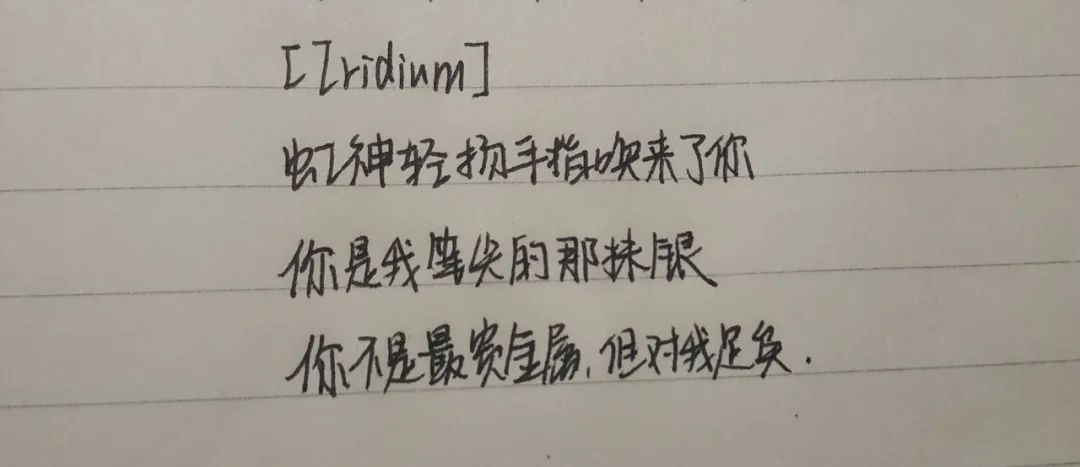 [Iridium]
虹神轻扬手指唤来了你
你是我笔尖的那抹银
你不是最贵金属,但对我足矣.